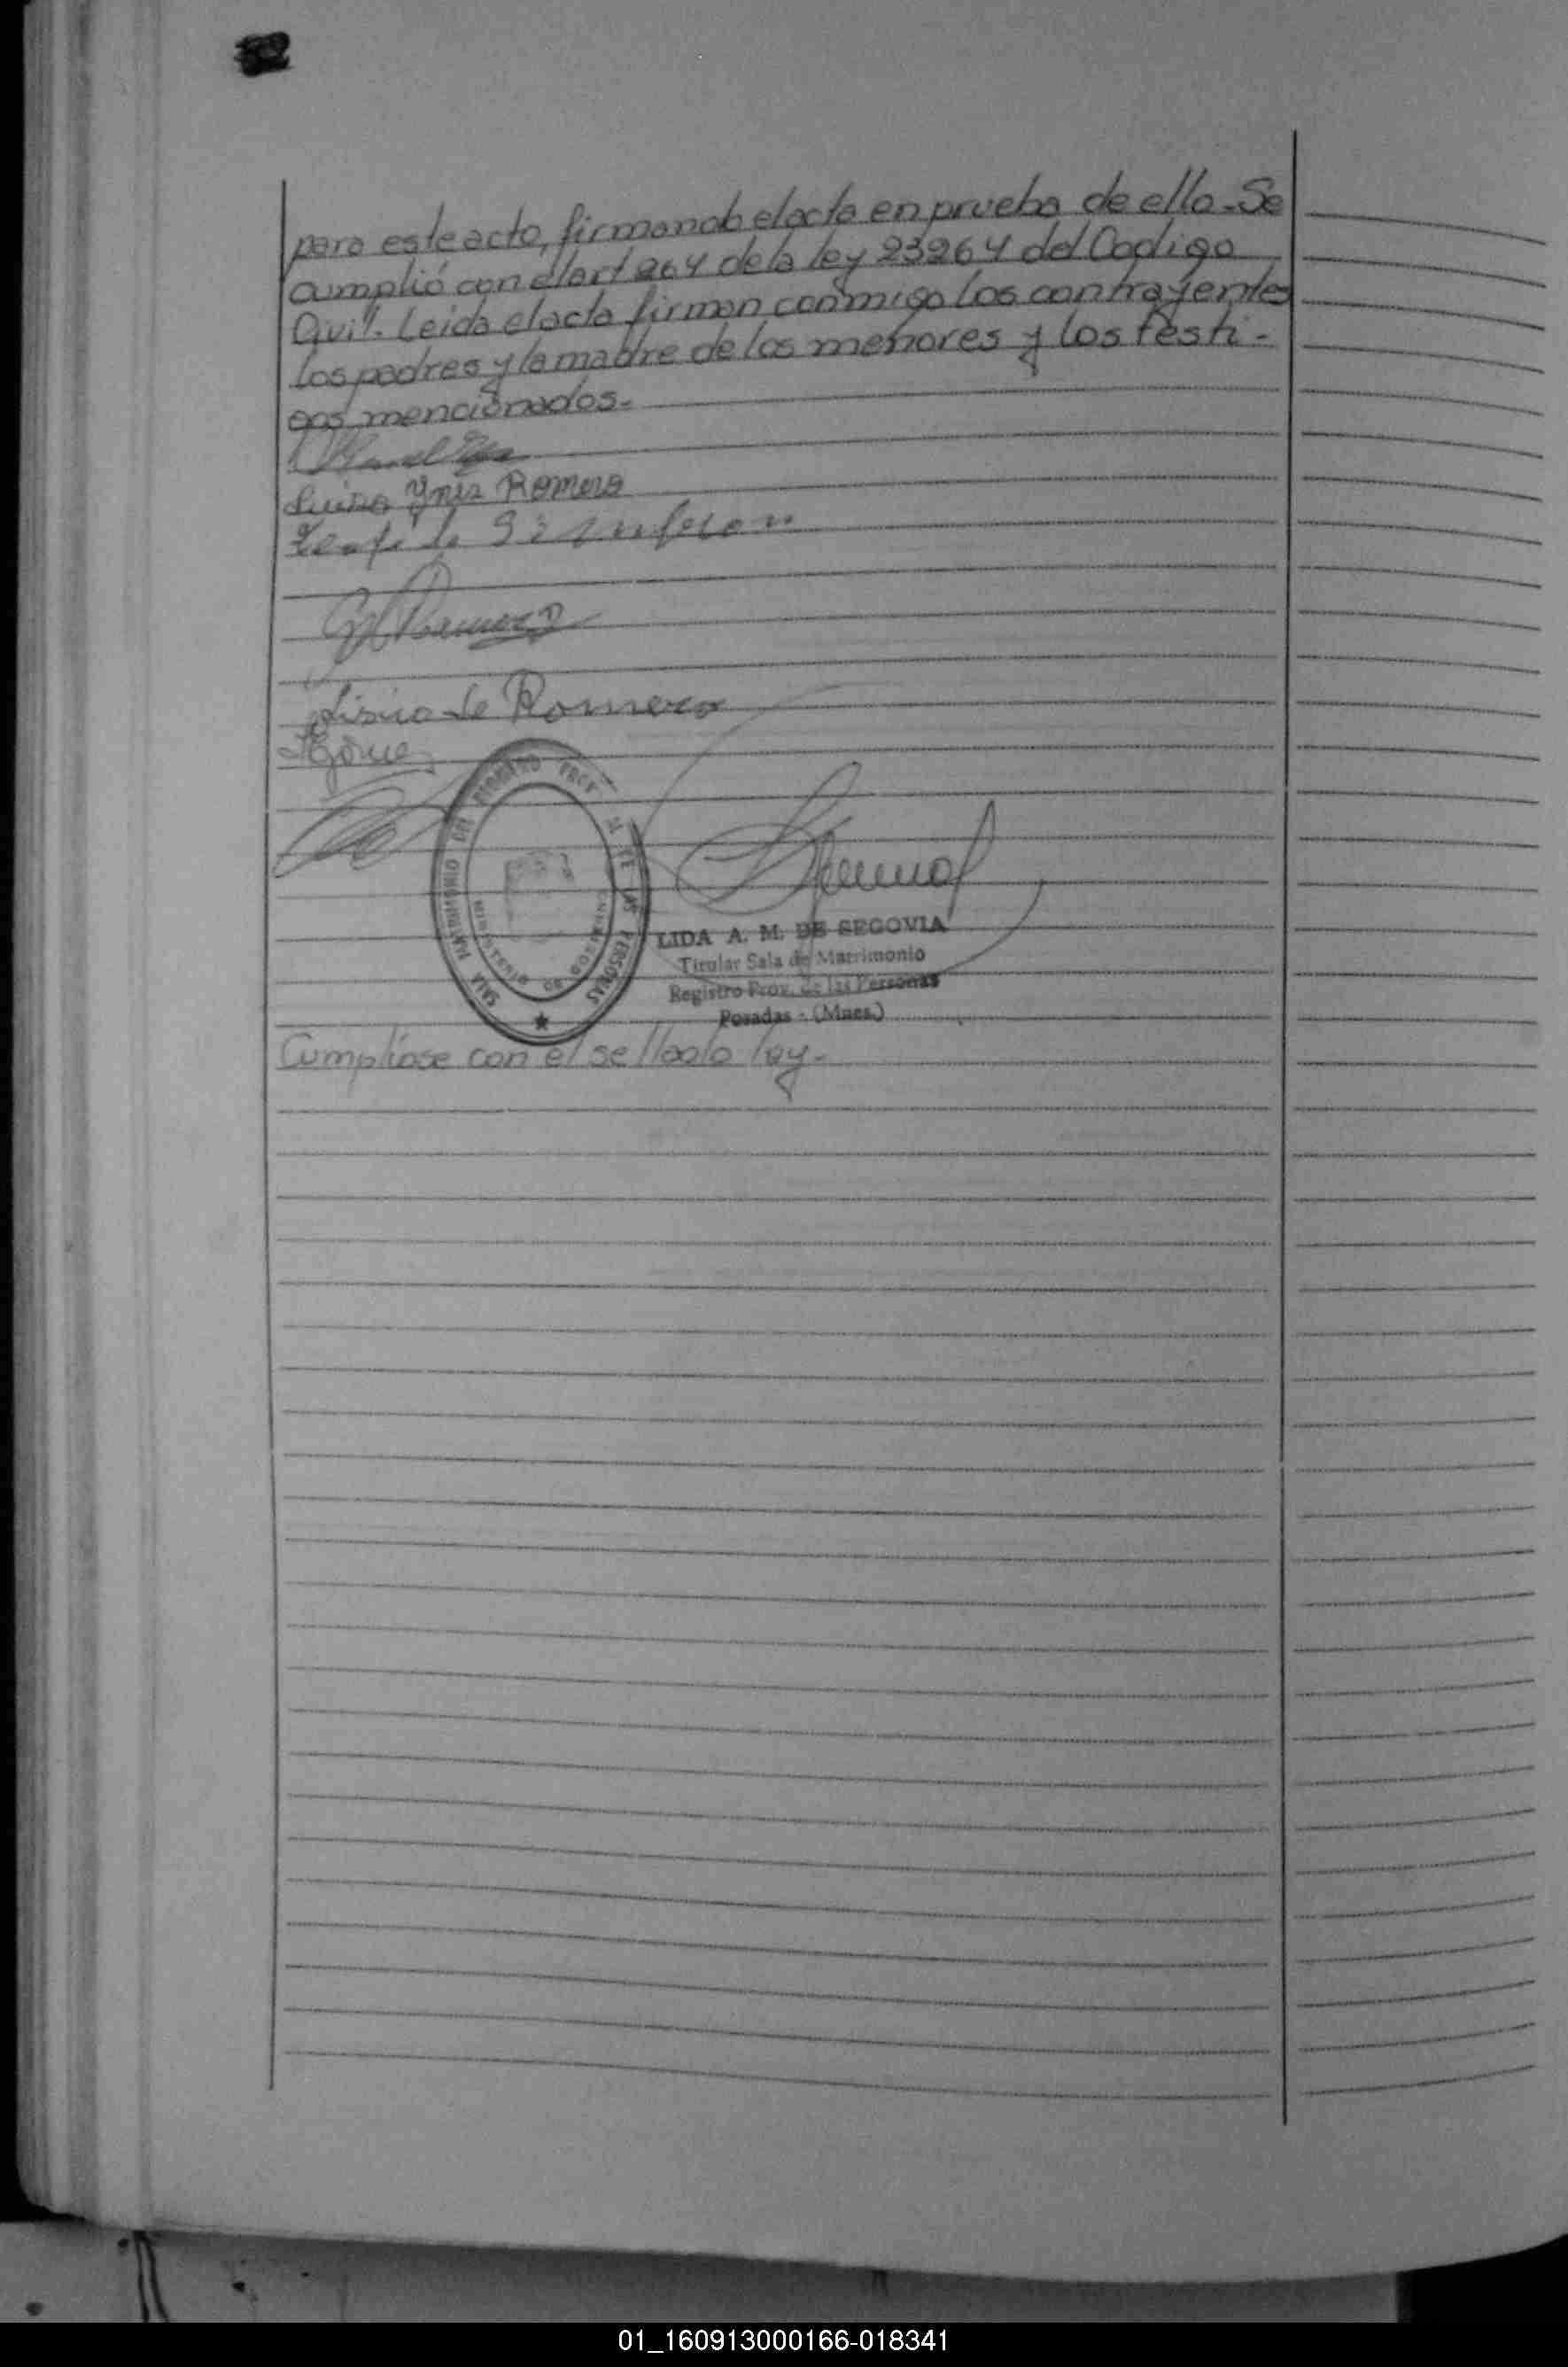 para este acto, firmando el acta en prueba de ello.- Se
cumplió con el art 264 de la ley 23264 del Codigo
Civil.- Leida el acta firman conmigo los contrayentes
los padres y la madre de los menores y los testi-
gos mencionados.-
Luisa Ynes Romero
Romero
de Romero
Gomez
SALA MATRIMONIO DEL REGISTRO PROV. DE LAS PERSONAS
MINISTERIO DE GOBIERNO
LIDA A. M. DE SEGOVIA
Titular Sala de Matrimonio
Registro Prov. de las Personas
Posadas - (Mnes.)
Cumpliose con el sellado ley.-
01_160913000166-018341